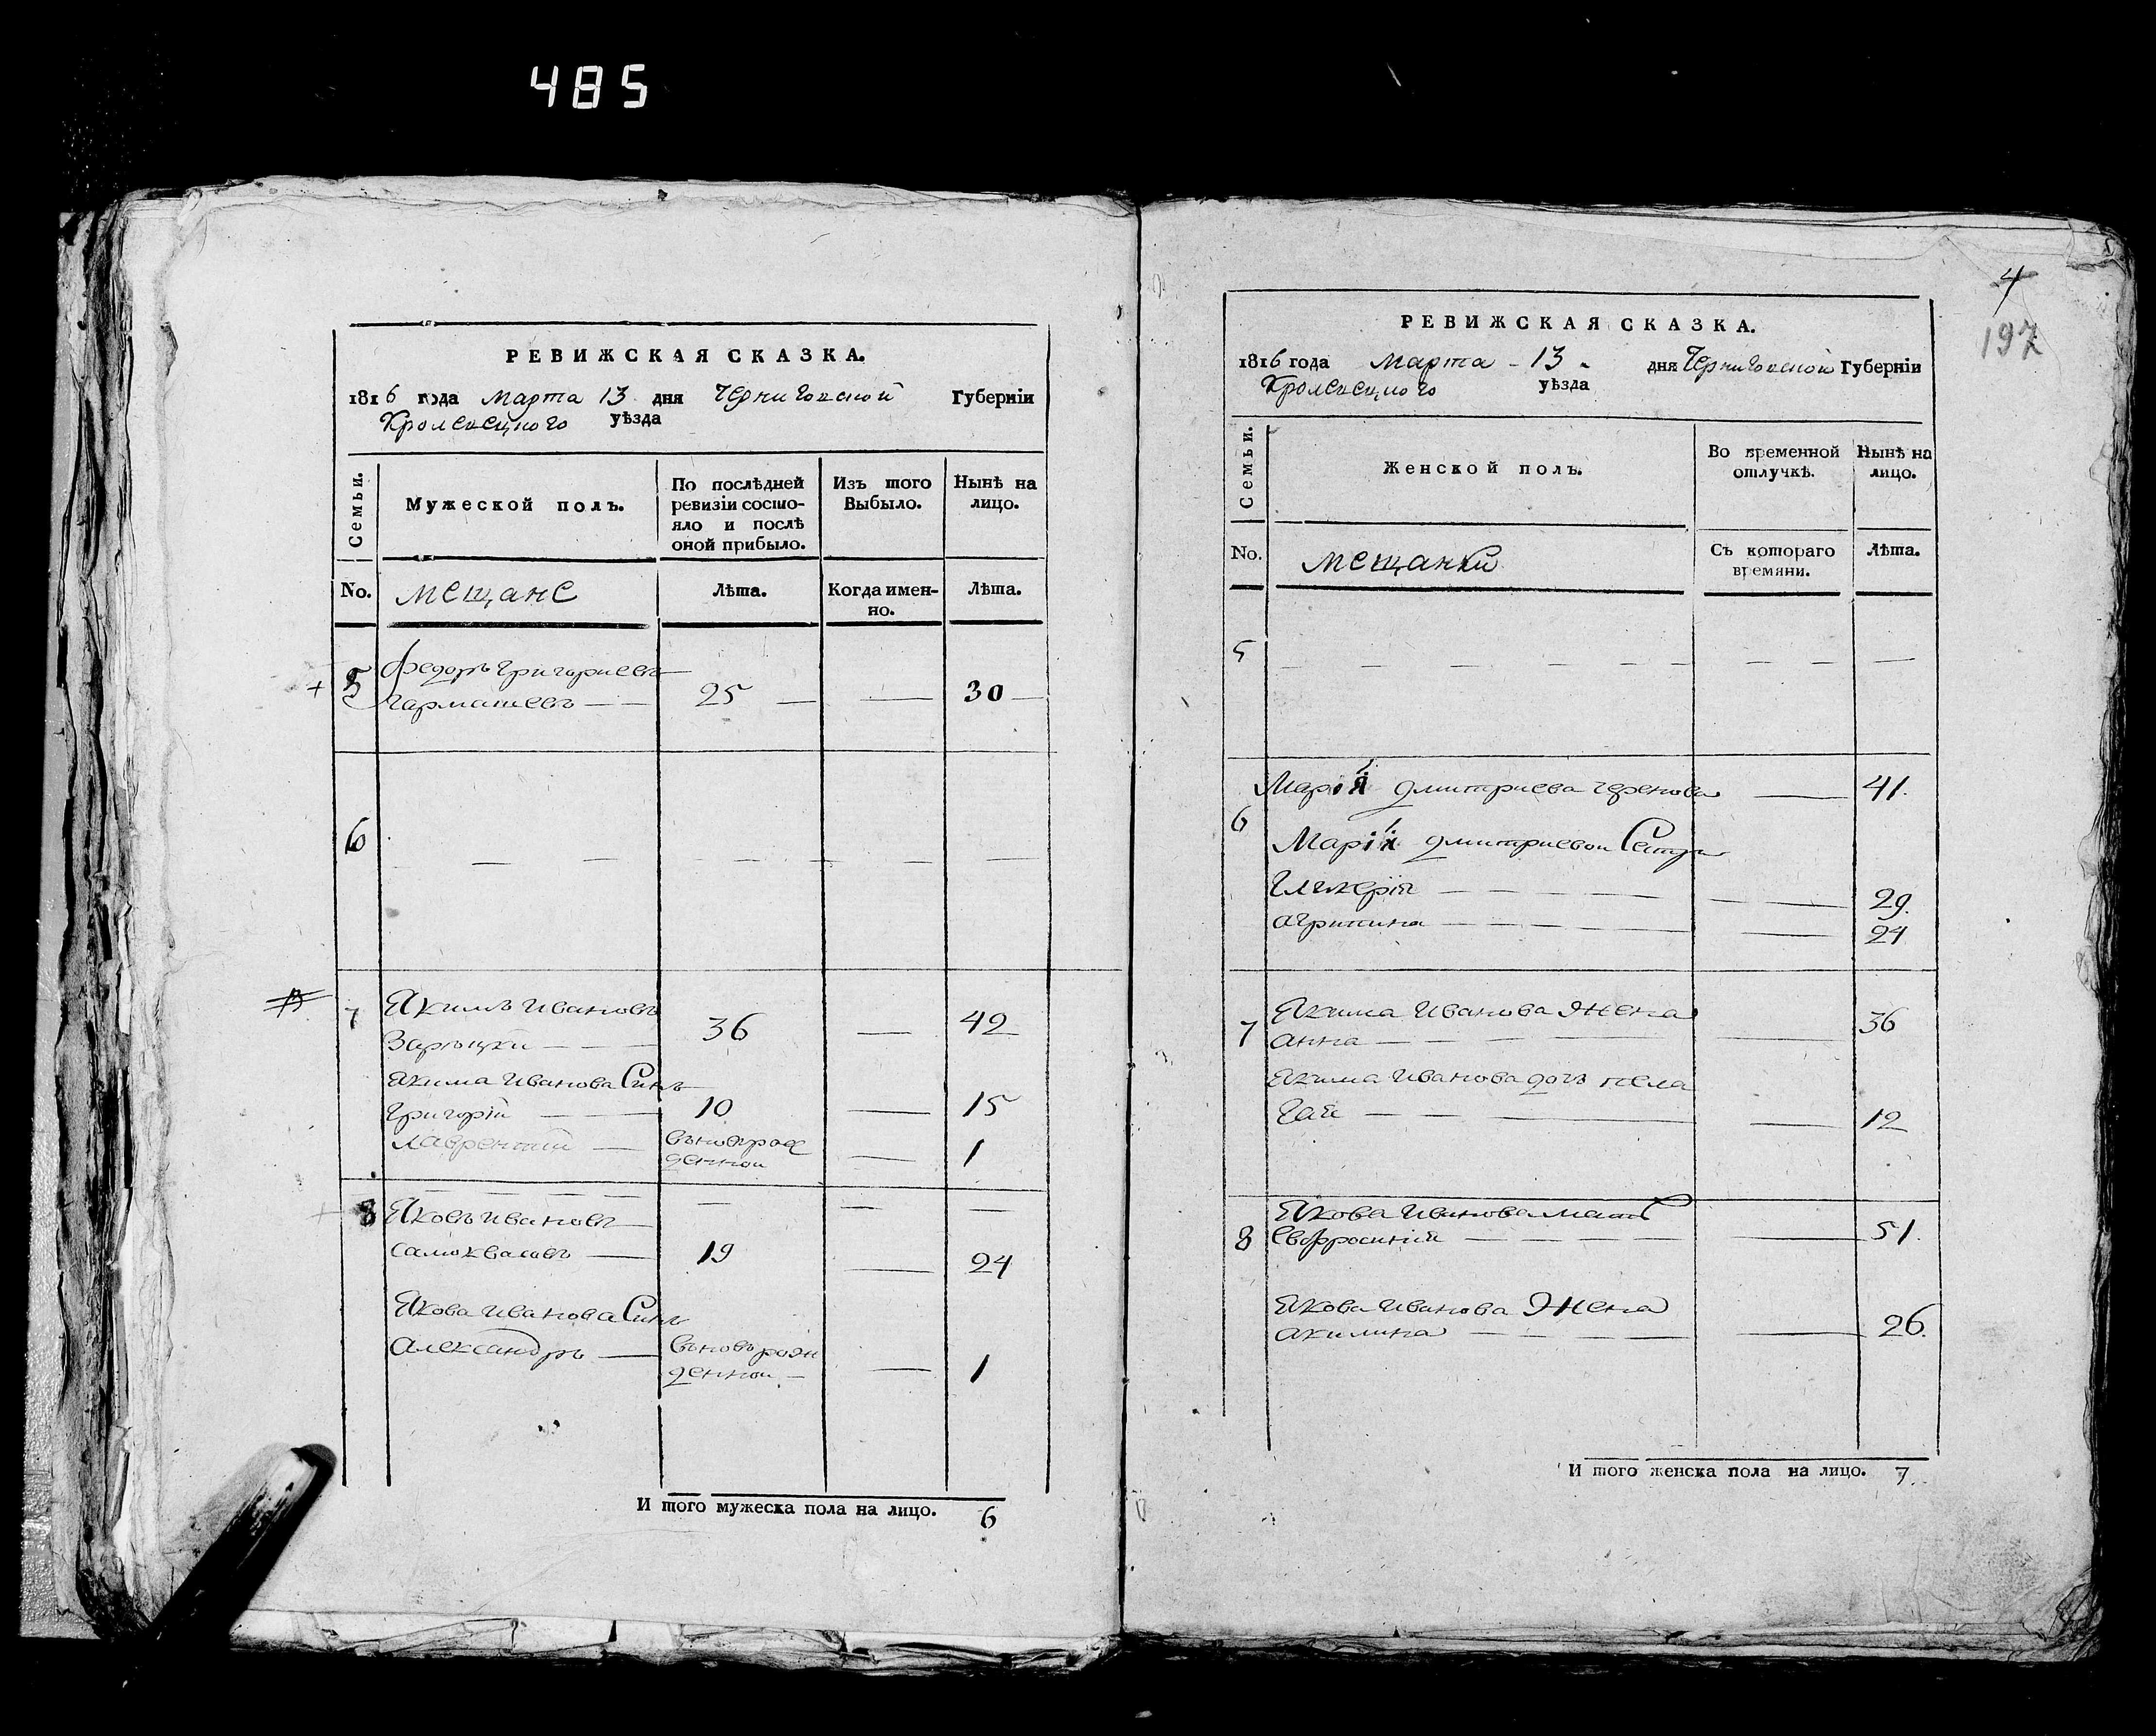 485
РЕВИЖСКАЯ СКАЗКА.
1816 года Марта 13 дня Черниговской Губерніи
Кролевецкого уѣзда
Семьи.
Мужеской полъ.
По послѣдней ревизіи состо-
яло и послѣ
оной прибыло.
Изъ того
Выбыло.
Нынѣ на
лицо.
No. мещане Лѣта. Когда имен-
но. Лѣта.
5 Федоръ Григориевъ
Гармашевъ 25 30
6
7 Якимъ Ивановъ
Зарѣцкй 36 42
Якима Иванова Синъ
Григорій 10 15
Лаврентий вьновъ рож
денной 1
8 Яковъ Ивановъ
Самоквасовъ 19 24
Якова Иванова Синъ
Александръ вьновъ рож
денной 1
И того мужеска пола на лицо. 6
4
197
РЕВИЖСКАЯ СКАЗКА.
1816 года Марта 13 дня Черниговской Губерніи
Кролевецкого уѣзда
Семьи.
Женской полъ.
Во временной
отлучкѣ.
Нынѣ на
лицо.
No. мещанки Съ котораго
времяни. Лѣта.
5
Марія Дмитриева 41.
6
Маріи Дмитриевои
Гликерія 29.
Агрипина 24
Якима Иванова Жена 36
7 Анна
Якима Иванова дочъ Пела
Гая 12
Якова Иванова мать 51.
8 Евфросиния
Якова Иванова Жена
Акилина 26.
И того женска пола на лицо. 7.